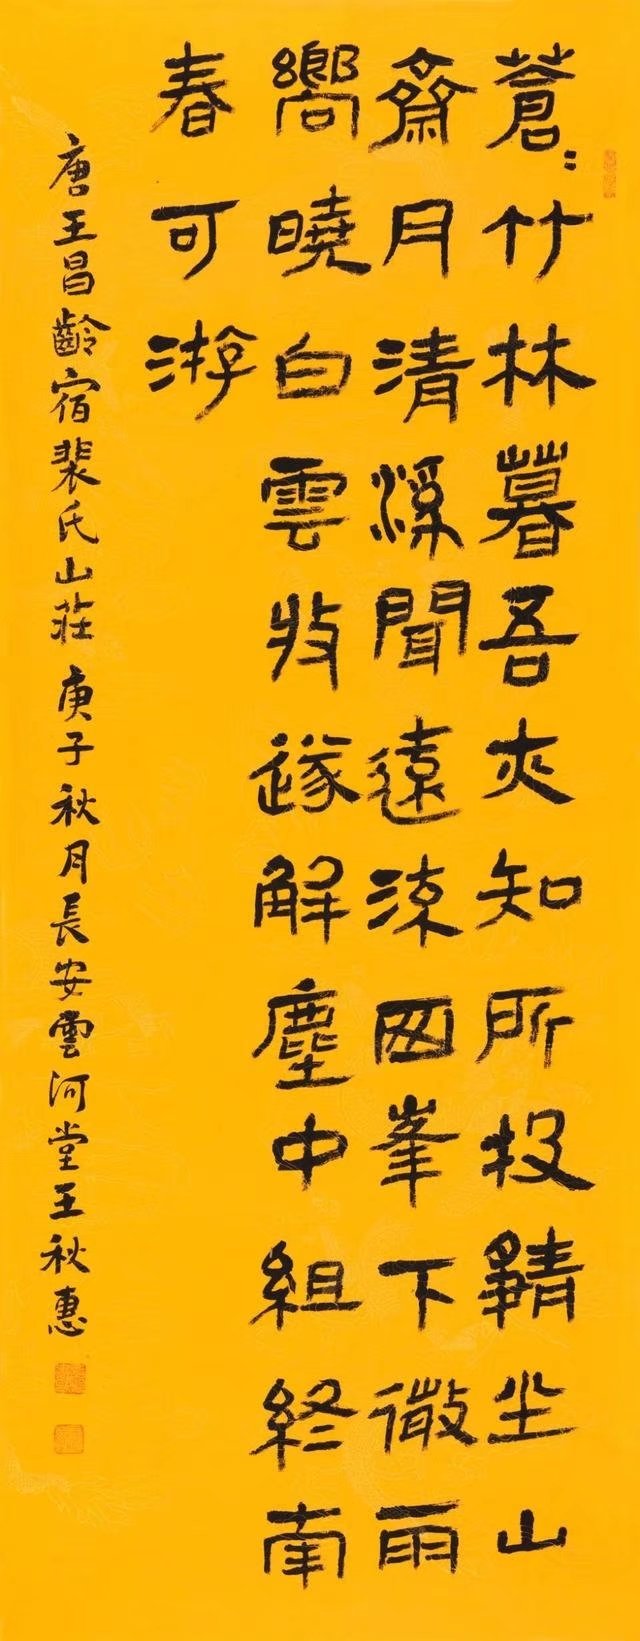 蒼〻竹林暮吾亦知所投靜坐山
齋月清溪聞遠流西峯下微雨
嚮曉白雲收遂解塵中組終南
春可游
唐王昌齡宿裴氏山莊庚子秋月長安雲河堂王秋惠